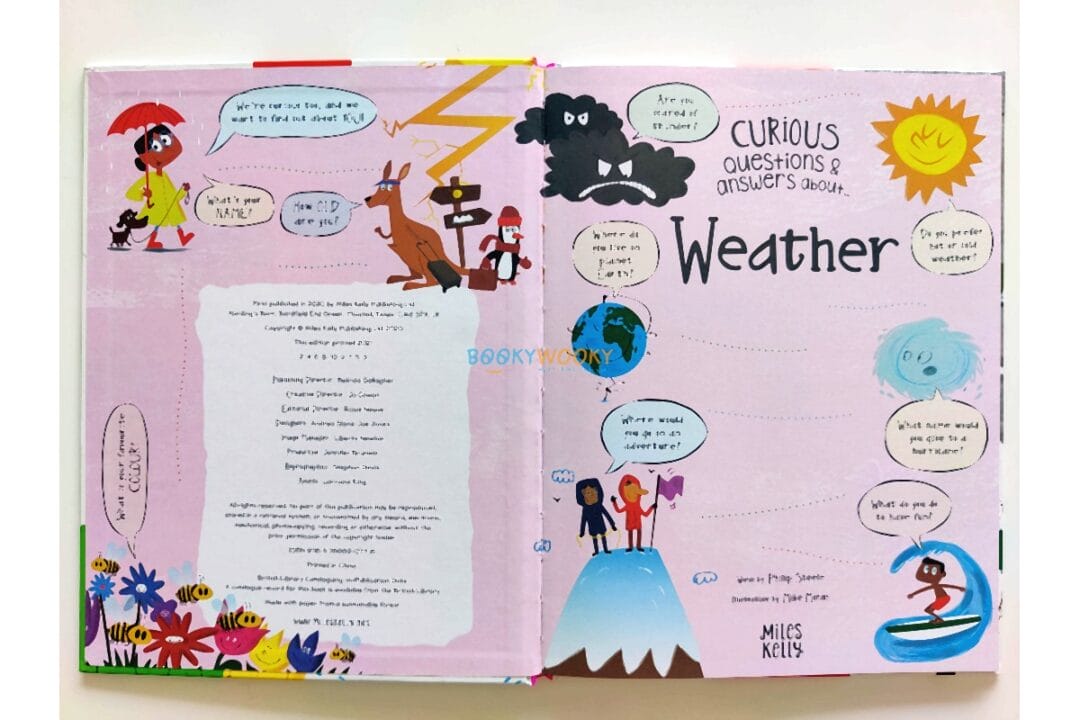 We're curious too, and we
want to find out about YOU!
What's your
NAME?
How OLD
are you?
First published in 2020 by Miles Kelly Publishing Ltd
Copyright © Miles Kelly Publishing Ltd 2020
This edition printed 2021
Publishing Director Belinda Gallagher
Creative Director Jo Cowan
Editorial Director Rosie Neave
Designers Andrea Slane, Joe Jones
Image Manager Liberty Newton
Production Jennifer Brunwin
Reprographics Stephan Davis
Assets Lorraine King
All rights reserved. No part of this publication may be reproduced,
stored in a retrieval system, or transmitted by any means, electronic,
mechanical, photocopying, recording or otherwise, without the
prior permission of the copyright holder.
Printed in China
British Library Cataloguing-in-Publication Data
A catalogue record for this book is available from the British Library
Made with paper from a sustainable forest
www.mileskelly.net
What is your favourite
COLOUR?
BOOKYWOOKY
Are you
scared of
thunder?
CURIOUS
questions &
answers about...
Weather
Where do
you live on
planet
Earth?
Do you prefer
hot or cold
weather?
Where would
you go to on
adventure?
What name would
you give to a
hurricane?
What do you do
to have fun?
Words by Philip Steele
Illustrations by Mike Moran
MILES
KELLY